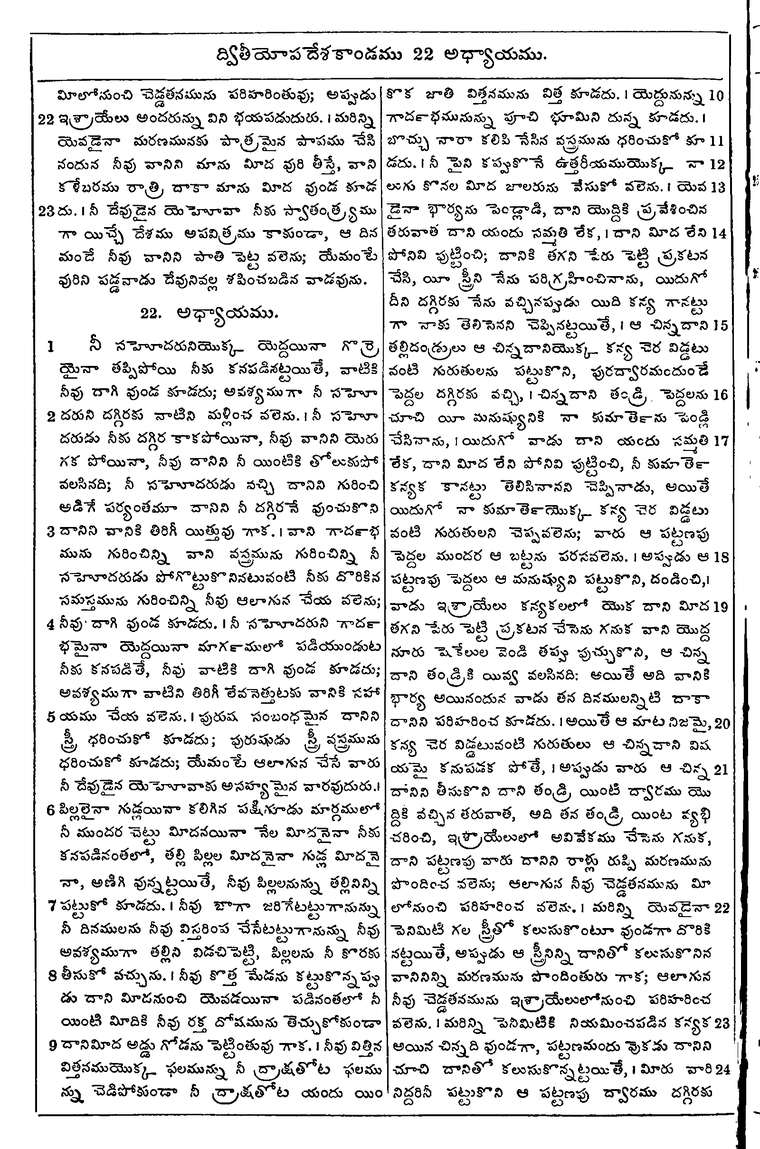 ద్వితీయోపదేశకాండము 22 అధ్యాయము.
మీలోనుంచి చెడ్డతనమును పరిహరింతువు; అప్పుడు
22 ఇశ్రాయేలు అందరున్ను విని భయపడుదురు. । మరిన్ని
యెవడైనా మరణమునకు పాత్రమైన పాపము చేసి
నందున నీవు వానిని మాను మీద వురి తీస్తే, వాని
కళేబరము రాత్రి దాకా మాను మీద వుండ కూడ
23 దు. । నీ దేవుడైన యెహోవా నీకు స్వాతంత్ర్యము
గా యిచ్చే దేశము అపవిత్రము కాకుండా, ఆ దిన
మందే నీవు వానిని పాతి పెట్ట వలెను; యేమంటే
వురిని పడ్డవాడు దేవునివల్ల శపించబడిన వాడవును.
22. అధ్యాయము.
1 నీ సహోదరునియొక్క యెద్దయినా గొర్రె
యైనా తప్పిపోయి నీకు కనపడినట్టయితే, వాటికి
నీవు దాగి వుండ కూడదు; అవశ్యముగా నీ సహో
2 దరుని దగ్గిరకు వాటిని మళ్లించ వలెను. । నీ సహో
దరుడు నీకు దగ్గిర కాకపోయినా, నీవు వానిని యెరు
గక పోయినా, నీవు దానిని నీ యింటికి తోలుకుపో
వలసినది; నీ సహోదరుడు వచ్చి దానిని గురించి
అడిగే పర్యంతమూ దానిని నీ దగ్గిరనే వుంచుకొని
3 దానిని వానికి తిరిగీ యిత్తువు గాక. । వాని గాదఁభ
మును గురించిన్ని వాని వస్త్రమును గురించిన్ని నీ
సహోదరుడు పోగొట్టుకొనినటువంటి నీకు దొరికిన
సమస్తమును గురించిన్ని నీవు ఆలాగున చేయ వలెను;
4 నీవు దాగి వుండ కూడదు. । నీ సహోదరుని గాదఁ
భమైనా యెద్దయినా మాగఁములో పడియుండుట
నీకు కనపడితే, నీవు వాటికి దాగి వుండ కూడదు;
అవశ్యముగా వాటిని తిరిగీ లేవనెత్తుటకు వానికి సహా
5 యము చేయ వలెను. । పురుష సంబంధమైన దానిని
స్త్రీ ధరించుకో కూడదు; పురుషుడు స్త్రీ వస్త్రమును
ధరించుకో కూడదు; యేమంటే ఆలాగున చేసే వారు
నీ దేవుడైన యెహోవాకు అసహ్యమైన వారవుదురు. ।
6 పిల్లలైనా గుడ్లయినా కలిగిన పక్షిగూడు మార్గములో
నీ ముందర చెట్టు మీదనయినా నేల మీదనైనా నీకు
కనపడినంతలో, తల్లి పిల్లల మీదనైనా గుడ్ల మీదనై
నా, అణిగి వున్నట్టయితే, నీవు పిల్లలనున్ను తల్లినిన్ని
7 పట్టుకో కూడదు. । నీవు బాగా జరిగేటట్టుగానున్ను
నీ దినములను నీవు విస్తరింప చేసేటట్టుగానున్ను నీవు
అవశ్యముగా తల్లిని విడచిపెట్టి, పిల్లలను నీ కొరకు
8 తీసుకో వచ్చును. । నీవు కొత్త మేడను కట్టుకొన్నప్పు
డు దాని మీదనుంచి యెవడయినా పడినంతలో నీ
యింటి మీదికి నీవు రక్త దోషమును తెచ్చుకోకుండా
9 దానిమీద అడ్డు గోడను పెట్టింతువు గాక. । నీవు విత్తిన
విత్తనముయొక్క ఫలమున్ను నీ ద్రాక్షతోట ఫలము
న్ను చెడిపోకుండా నీ ద్రాక్షతోట యందు యిం
కొక జాతి విత్తనమును విత్త కూడదు. । యెద్దునున్ను 10
గాదఁభమునున్ను పూచి భూమిని దున్న కూడదు. ।
బొచ్చు నారా కలిపి నేసిన వస్త్రమును ధరించుకో కూ 11
డదు. । నీ పైని కప్పుకొనే ఉత్తరీయముయొక్క నా 12
లుగు కొనల మీద జాలరును వేసుకో వలెను. । యెవ 13
డైనా భార్యను పెండ్లాడి, దాని యొద్దికి ప్రవేశించిన
తరువాత దాని యందు సమ్మతి లేక, । దాని మీద లేని 14
పోనివి పుట్టించి; దానికి తగని పేరు పెట్టి ప్రకటన
చేసి, యీ స్త్రీని నేను పరిగ్రహించినాను, యిదుగో
దీని దగ్గిరకు నేను వచ్చినప్పుడు యిది కన్య గానట్టు
గా నాకు తెలిసెనని చెప్పినట్టయితే, । ఆ చిన్నదాని 15
తల్లిదండ్రులు ఆ చిన్నదానియొక్క కన్య చెర విడ్డటు
వంటి గురుతులను పట్టుకొని, పురద్వారమందుండే
పెద్దల దగ్గిరకు వచ్చి, । చిన్నదాని తండ్రి పెద్దలను 16
చూచి యీ మనుష్యునికి నా కుమాతెఁను పెండ్లి
చేసినాను, । యిదుగో వాడు దాని యందు సమ్మతి 17
లేక, దాని మీద లేని పోనివి పుట్టించి, నీ కుమాతెఁ
కన్యక కానట్టు తెలిసినానని చెప్పినాడు, అయితే
యిదుగో నా కుమాతెఁయొక్క కన్య చెర విడ్డటు
వంటి గురుతులని చెప్పవలెను; వారు ఆ పట్టణపు
పెద్దల ముందర ఆ బట్టను పరసవలెను. । అప్పుడు ఆ 18
పట్టణపు పెద్దలు ఆ మనుష్యుని పట్టుకొని, దండించి, ।
వాడు ఇశ్రాయేలు కన్యకలలో యొక దాని మీద 19
తగని పేరు పెట్టి ప్రకటన చేసెను గనుక వాని యొద్ద
నూరు షెకేలుల వెండి తప్పు పుచ్చుకొని, ఆ చిన్న
దాని తండ్రికి యివ్వ వలసినది: అయితే అది వానికి
భార్య అయినందున వాడు తన దినములన్నిటి దాకా
దానిని పరిహరించ కూడదు. । అయితే ఆ మాట నిజమై, 20
కన్య చెర విడ్డటువంటి గురుతులు ఆ చిన్నదాని విష
యమై కనుపడక పోతే, । అప్పుడు వారు ఆ చిన్న 21
దానిని తీసుకొని దాని తండ్రి యింటి ద్వారము యొ
ద్దికి వచ్చిన తరువాత, అది తన తండ్రి యింట వ్యభి
చరించి, ఇశ్రాయేలులో అవివేకము చేసెను గనుక,
దాని పట్టణపు వారు దానిని రాళ్లు రువ్వి మరణమును
పొందించ వలెను; ఆలాగున నీవు చెడ్డతనమును మీ
లోనుంచి పరిహరించ వలెను. । మరిన్ని యెవడైనా 22
పెనిమిటి గల స్త్రీతో కలుసుకొంటూ వుండగా దొరికి
నట్టయితే, అప్పుడు ఆ స్త్రీనిన్ని దానితో కలుసుకొనిన
వానినిన్ని మరణమును పొందింతురు గాక; ఆలాగున
నీవు చెడ్డతనమును ఇశ్రాయేలులోనుంచి పరిహరించ
వలెను. । మరిన్ని పెనిమిటికి నియమించపడిన కన్యక 23
అయిన చిన్నది వుండగా, పట్టణమందు వొకడు దానిని
చూచి దానితో కలుసుకొన్నట్టయితే, । మీరు వారి 24
నిద్దరినీ పట్టుకొని ఆ పట్టణపు ద్వారము దగ్గిరకు